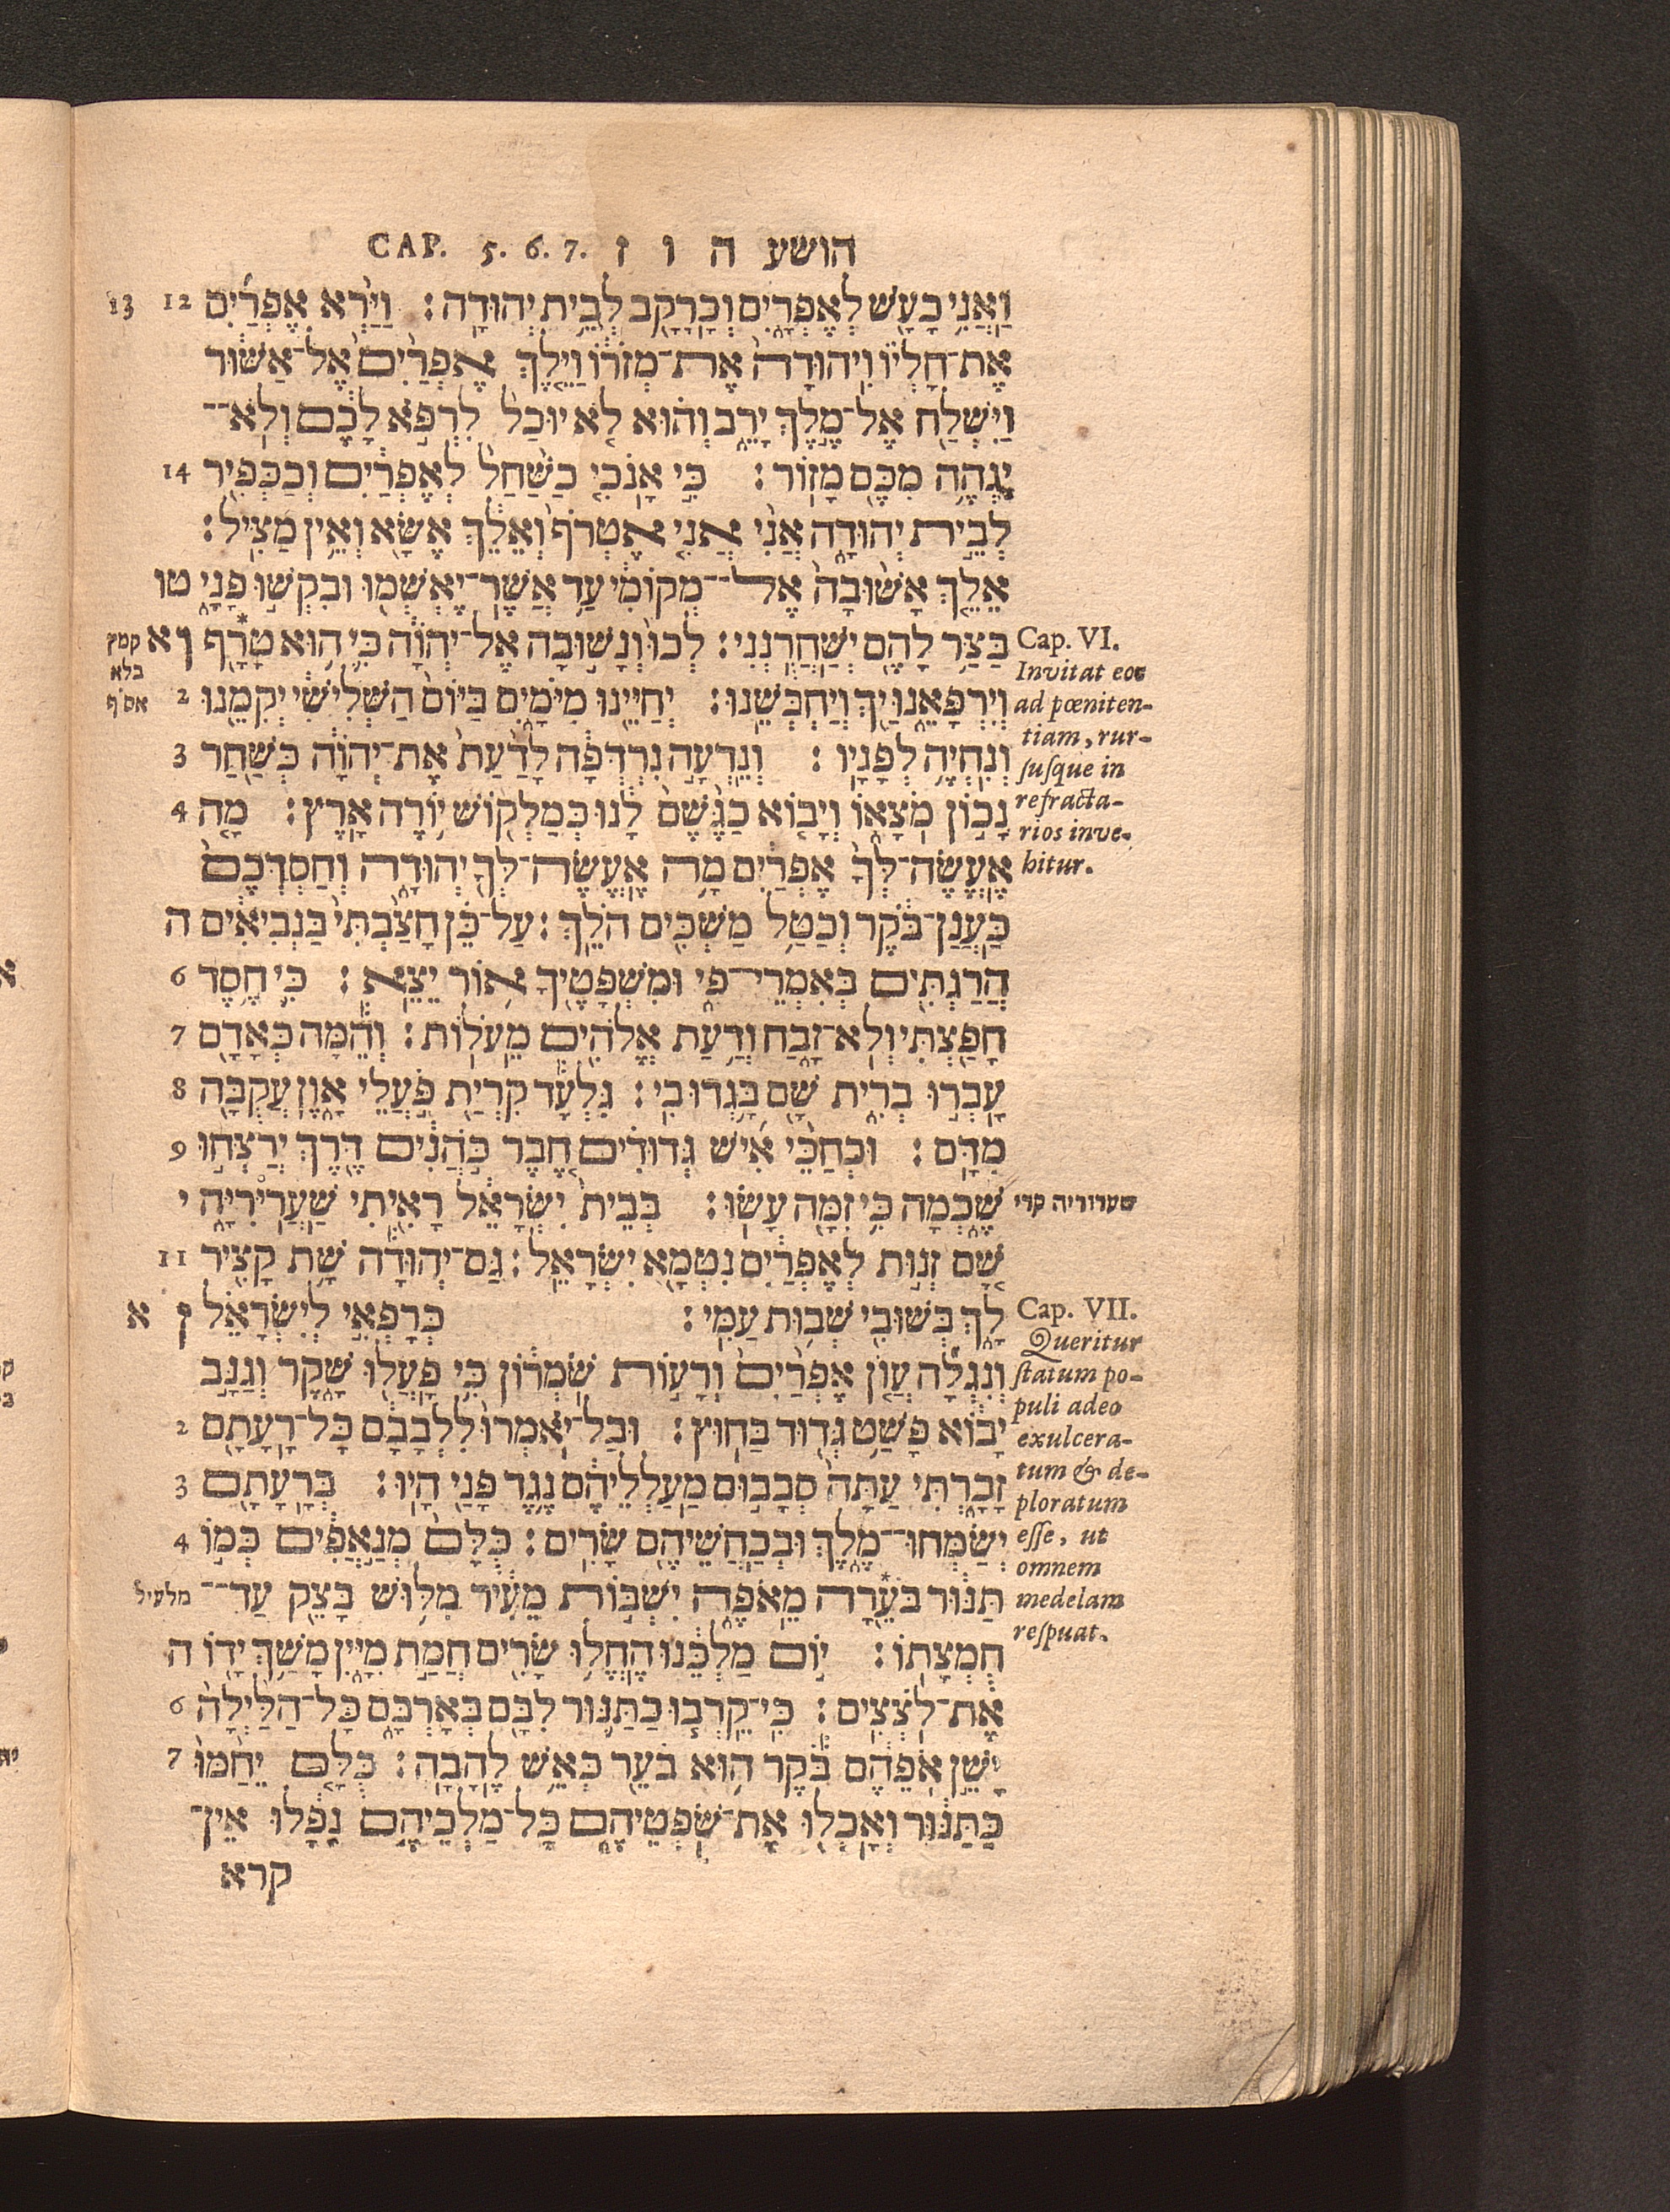 הושע ה ו ז CAP. 5. 6. 7.
וַאֲנִי כָעָשׁ לְאֶפְרָיִם וְכָרָקָב לְבֵית יְהוּדָה: וַיַּרְא אֶפְרַיִם 12 13
אֶת־חָלְיוֹ וִיהוּדָה אֶת־מְזֹרוֹ וַיֵּלֶךְ אֶפְרַיִם אֶל־אַשּׁוּר
וַיִּשְׁלַח אֶל־מֶלֶךְ יָרֵב וְהוּא לֹא יוּכַל לִרְפֹּא לָכֶם וְלֹא־
יִגְהֶה מִכֶּם מָזוֹר: כִּי אָנֹכִי כַשַּׁחַל לְאֶפְרַיִם וְכַכְּפִיר 14
לְבֵית יְהוּדָה אֲנִי אֲנִי אֶטְרֹף וְאֵלֵךְ אֶשָּׂא וְאֵין מַצִּיל:
אֵלֵךְ אָשׁוּבָה אֶל־מְקוֹמִי עַד אֲשֶׁר־יֶאְשְׁמוּ וּבִקְשׁוּ פָנָי טו
Cap. VI.
בַּצַּר לָהֶם יְשַׁחֲרֻנְנִי: לְכוּ וְנָשׁוּבָה אֶל־יְהוָֹה כִּי הוּא טָרָף* ו א
קמץ
בלא
אס׳ף
Invitat eos
וְיִרְפָּאֵנוּ יַךְ וְיַחְבְּשֵׁנוּ: יְחַיֵּינוּ מִיֹּמָיִם בַּיּוֹם הַשְּׁלִישִׁי יְקִמֵנוּ 2
ad pœniten-
tiam, rur-
וְנִחְיֶה לְפָנָיו: וְנֵדְעָה נִרְדְּפָה לָדַעַת אֶת־יְהוָֹה כְּשַׁחַר 3
susque in
נָכוֹן מֹצָאוֹ וְיָבוֹא כַגֶּשֶׁם לָנוּ כְּמַלְקוֹשׁ יוֹרֶה אָרֶץ: מָה 4
refracta-
rios inve-
אֶעֱשֶׂה־לְּךָ אֶפְרַיִם מָה אֶעֱשֶׂה־לְּךָ יְהוּדָה וְחַסְדְּכֶם
hitur.
כַּעֲנַן־בֹּקֶר וְכַטַּל מַשְׁכִּים הֹלֵךְ: עַל־כֵּן חָצַבְתִּי בַּנְּבִיאִים ה
הֲרַגְתִּים בְּאִמְרֵי־פִי וּמִשְׁפָּטֶיךָ אוֹר יֵצֵא: כִּי חֶסֶד 6
חָפַצְתִּי וְלֹא־זָבַח וְדַעַת אֱלֹהִים מֵעֹלוֹת: וְהֵמָּה כְּאָדָם 7
עָבְרוּ בְרִית שָׁם בָּגְדוּ בִי: גִּלְעָד קִרְיַת פֹּעֲלֵי אָוֶן עֲקֻבָּה 8
מִדָּם: וּכְחַכֵּי אִישׁ גְּדוּדִים חֶבֶר כֹּהֲנִים דֶּרֶךְ יְרַצְּחוּ 9
שֶׁכְמָה כִּי זִמָּה עָשׂוּ: בְּבֵית יִשְׂרָאֵל רָאִיתִי שַׁעֲרִירִיָּה י
שערוריה קרי
שָׁם זְנוּת לְאֶפְרַיִם נִטְמָא יִשְׂרָאֵל: גַּם־יְהוּדָה שָׁת קָצִיר 11
לָךְ בְּשׁוּבִי שְׁבוּת עַמִּי: כְּרָפְאִי לְיִשְׂרָאֵל ז א
Cap. VII.
Queritur
וְנִגְלָה עֲוֹן אֶפְרַיִם וְרָעוֹת שֹׁמְרוֹן כִּי פָעֲלוּ שָׁקֶר וְגַנָּב
statum po-
puli adeo
יָבוֹא פָּשַׁט גְּדוּד בַּחוּץ: וּבַל־יֹאמְרוּ לִלְבָבָם כָּל־רָעָתָם 2
exulcera-
זָכָרְתִּי עַתָּה סְבָבוּם מַעַלְלֵיהֶם נֶגֶד פָּנַי הָיוּ: בְּרָעָתָם 3
tum & de-
ploratum
יְשַׂמְּחוּ־מֶלֶךְ וּבְכַחֲשֵׁיהֶם שָׂרִים: כֻּלָּם מְנָאֲפִים כְּמוֹ 4
esse, ut
omnem
תַנּוּר בֹּעֵרָה* מֵאֹפֶה יִשְׁבּוֹת מֵעִיר מִלּוּשׁ בָּצֵק עַד־
מלעיל
medelam
respuat.
חֻמְצָתוֹ: יוֹם מַלְכֵּנוּ הֶחֱלוּ שָׂרִים חֲמַת מִיָּיִן מָשַׁךְ יָדוֹ ה
אֶת־לֹצְצִים: כִּי־קֵרְבוּ כַתַּנּוּר לִבָּם בְּאָרְבָּם כָּל־הַלַּיְלָה 6
יָשֵׁן אֹפֵהֶם בֹּקֶר הוּא בֹעֵר כְּאֵשׁ לֶהָבָה: כֻּלָּם יֵחַמּוּ 7
כַּתַּנּוּר וְאָכְלוּ אֶת־שֹׁפְטֵיהֶם כָּל־מַלְכֵיהֶם נָפָלוּ אֵין־
קרא